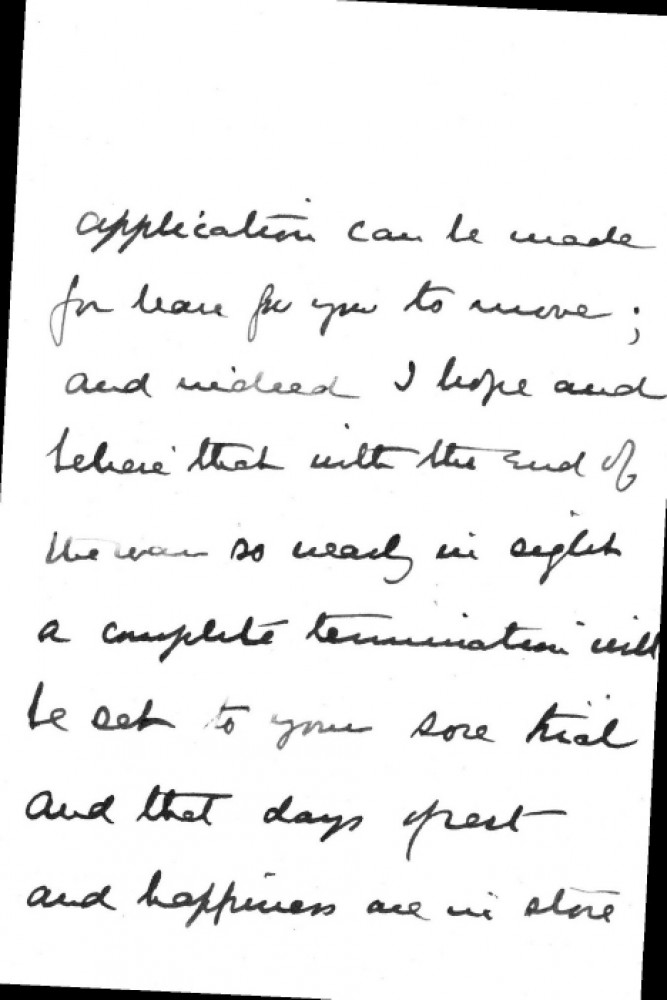 application can be made
for leave for you to move;
and indeed I hope and
believe that with the end of
the war so nearly in sight
a complete termination will
be set to your sore trial
and that days of rest
and happiness are in store